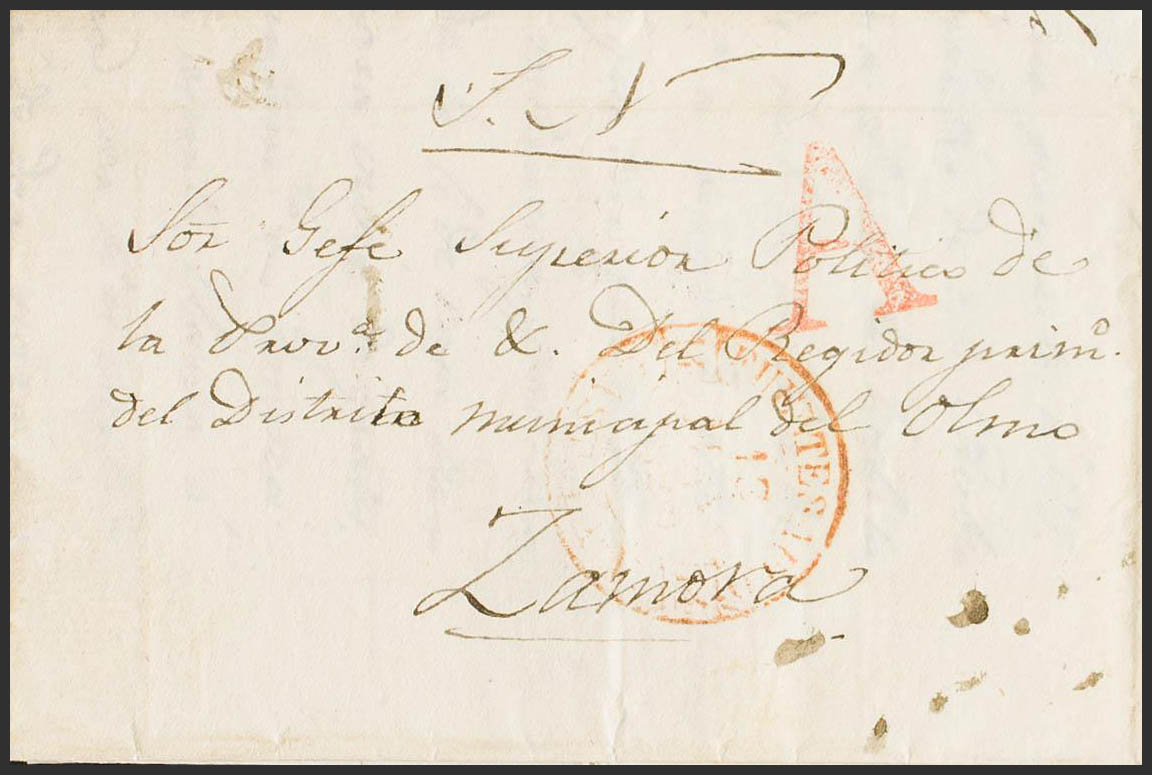 S. N
A
Sor Gefe Superior Politico de
la Provª de &. Del Regidor primº.
del Distrito municipal del Olmo
Zamora